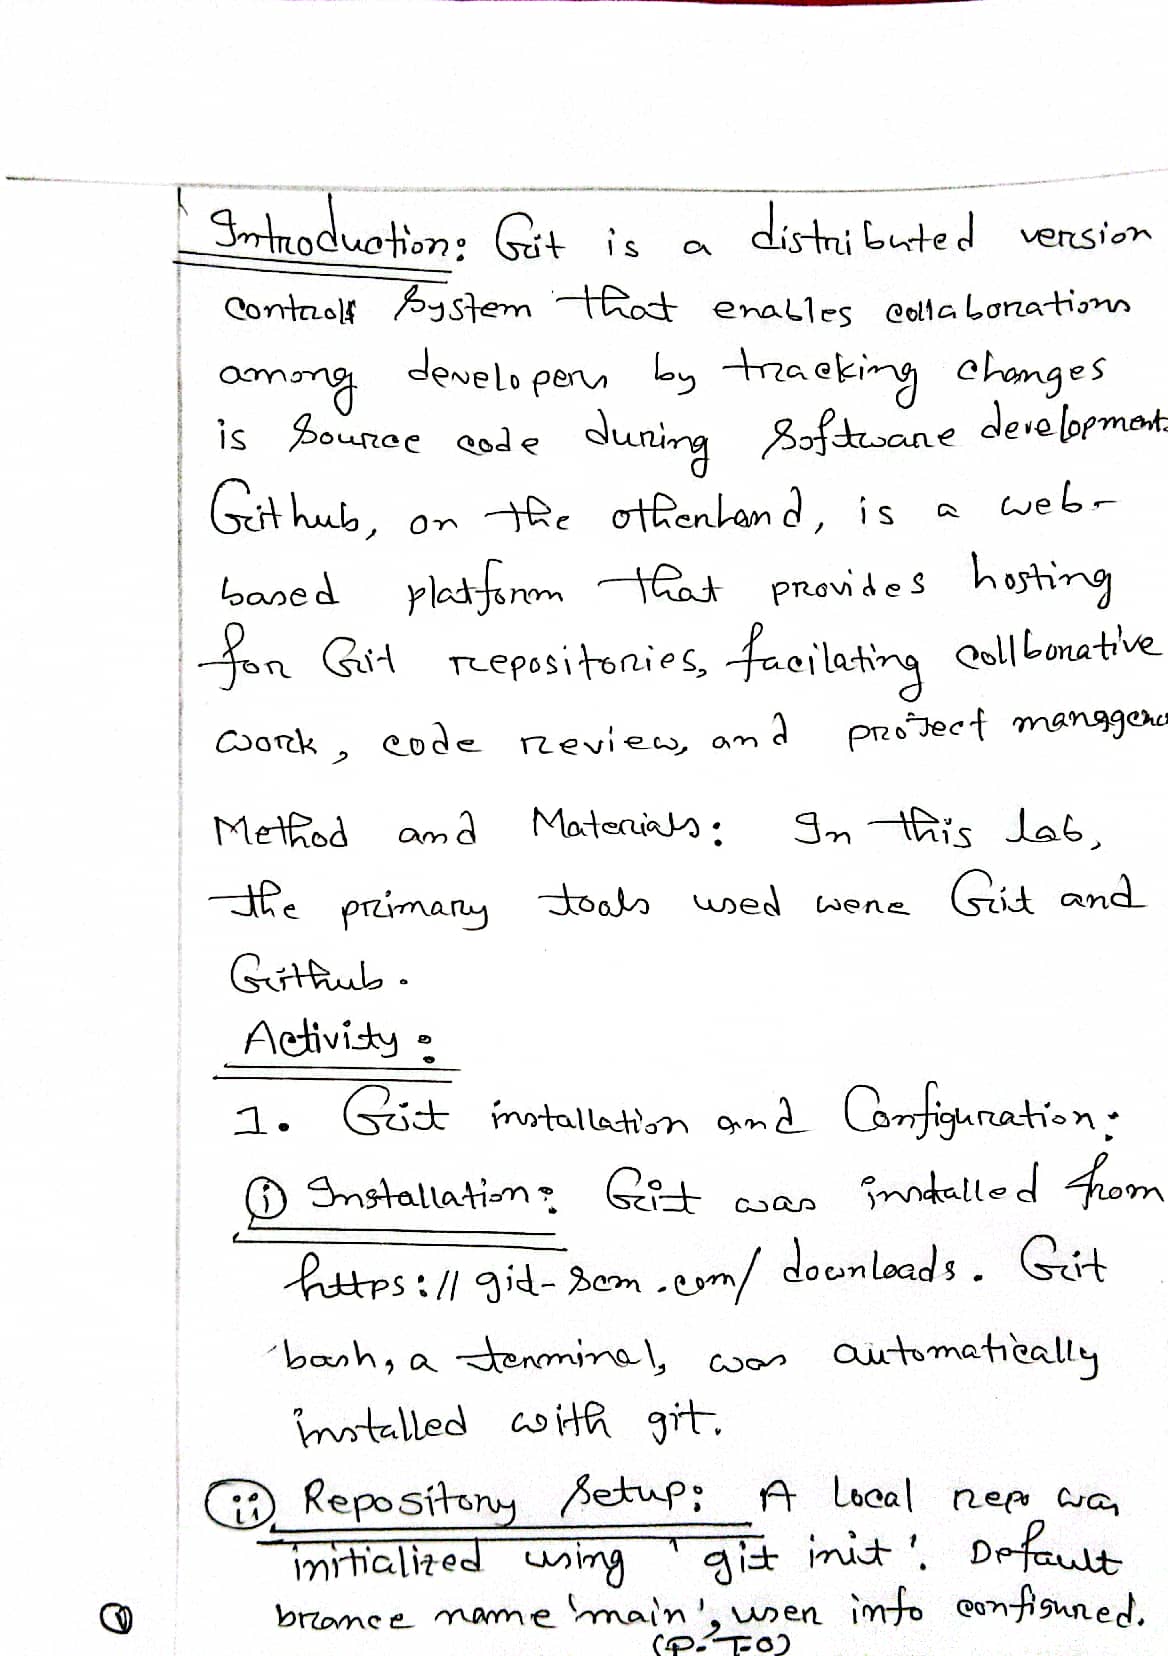 Introduction: Git is a distributed version
control system that enables collaborations
among developers by tracking changes
is source code during software development.
Github, on the otherhand, is a web-
based platform that provides hosting
for Git repositories, facilating collborative
work, code review, and project
Method and Materials: In this lab,
the primary tools used were Git and
Github.
Activity:
1. Git installation and Configuration:
(i) Installation: Git was installed from
https://git-scm.com/downloads. Git
bash, a terminal, was automatically
installed with git.
(ii) Repository Setup: A local repo was
initialized using 'git init'. Default
brance name 'main', user info configured.
①
(P.T.O)